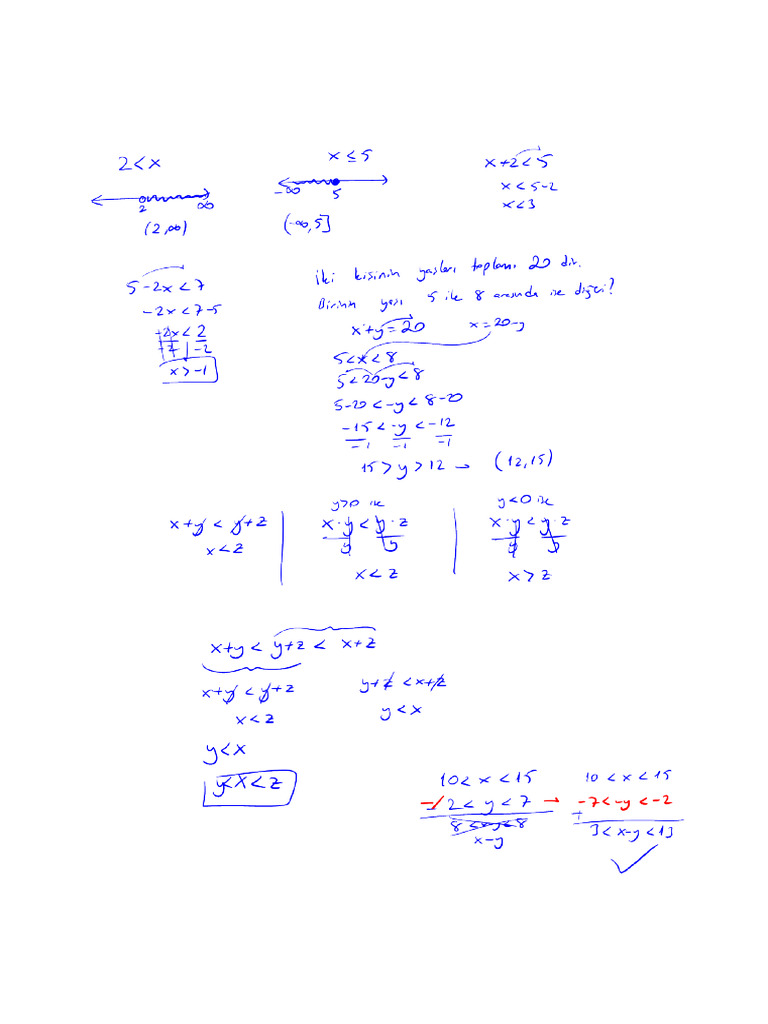 2 < x
2 ∞
(2,∞)
x ≤ 5
-∞ 5
(-∞,5]
x+2 < 5
x < 5-2
x < 3
5-2x < 7
-2x < 7-5
-2x < 2
-2 -2
x > -1
İki kişinin yaşları toplamı 20 dir.
Birinin yaşı 5 ile 8 arasında ise diğeri?
x+y = 20 x = 20-y
5 < x < 8
5 < 20-y < 8
5-20 < -y < 8-20
-15 < -y < -12
-1 -1 -1
15 > y > 12 → (12,15)
x+y < y+z
x < z
y>0 ise
x·y < y·z
y y
x < z
y<0 ise
x·y < y·z
y y
x > z
x+y < y+z < x+z
x+y < y+z
x < z
y+z < x+z
y < x
y < x
y < x < z
10 < x < 15
- 2 < y < 7 →
x-y
10 < x < 15
-7 < -y < -2
+
3 < x-y < 13